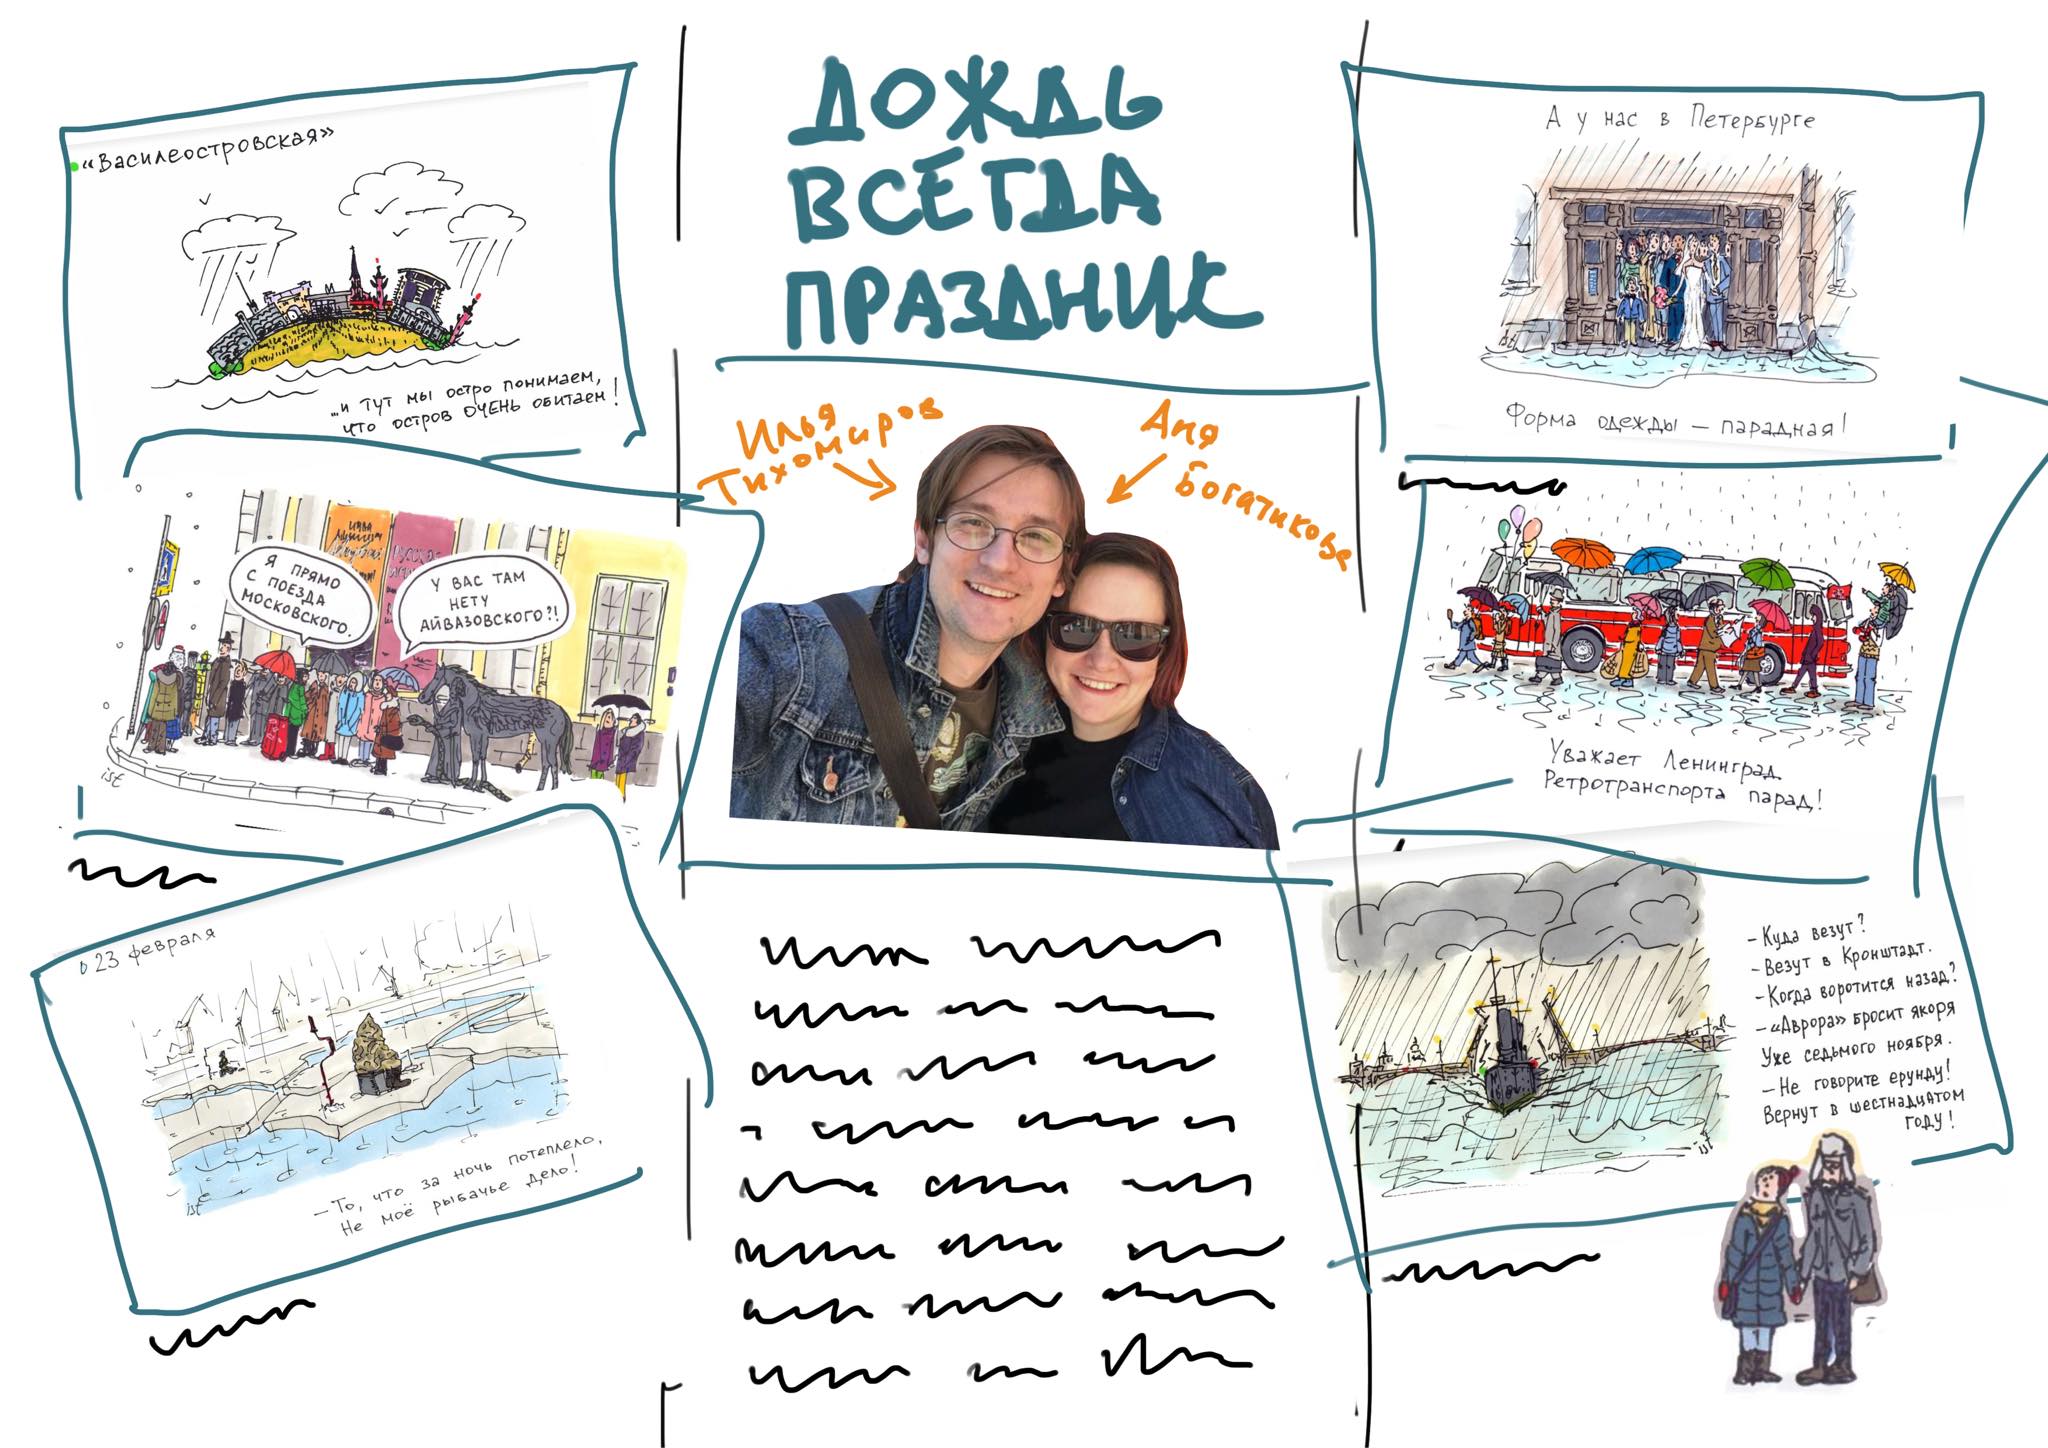 ДОЖДЬ
ВСЕГДА
ПРАЗДНИК
Илья
Тихомиров
Аня
Богатикова
«Василеостровская»
...и тут мы остро понимаем,
что остров ОЧЕНЬ обитаем!
Я ПРЯМО
С ПОЕЗДА
МОСКОВСКОГО.
У ВАС ТАМ
НЕТУ
АЙВАЗОВСКОГО?!
ist
23 февраля
– То, что за ночь потеплело,
Не моё рыбачье дело!
ist
А у нас в Петербурге
Форма одежды – парадная!
Уважает Ленинград
Ретротранспорта парад!
– Куда везут?
– Везут в Кронштадт.
– Когда воротится назад?
– «Аврора» бросит якоря
Уже седьмого ноября.
– Не говорите ерунду!
Вернут в шестнадцатом
году!
ist